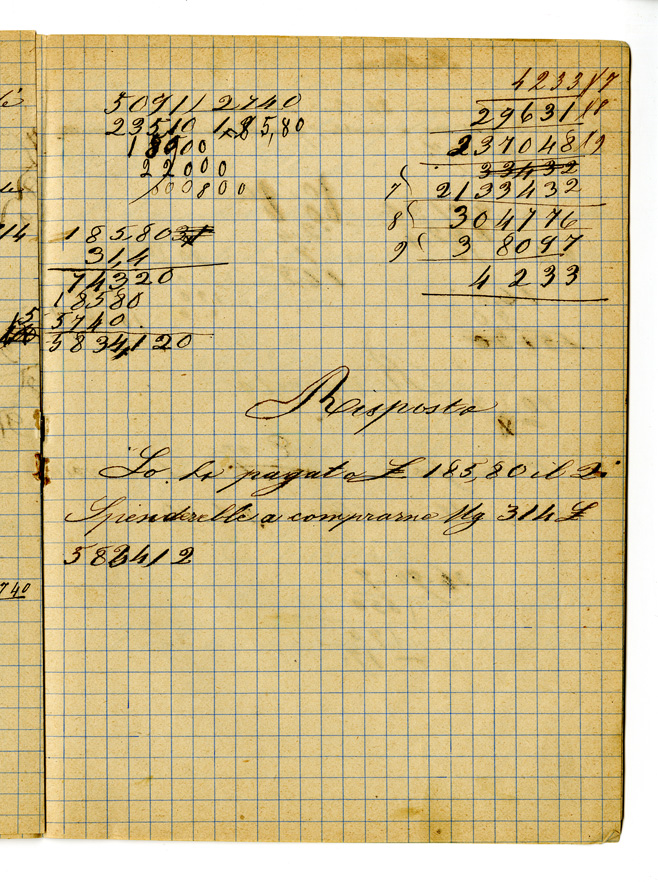 50911 2740
23510 185,80
15900
22000
000800
185,80
314
74320
18580
5740
5834,120
4233 7
29631
237048 9
33432
7 2133432
8 304776
9 38097
4233
Risposta
Lo ho pagato £ 185,80 il Q.
Spenderebbe a comprarne Mg 314 £
583412
14
5
740